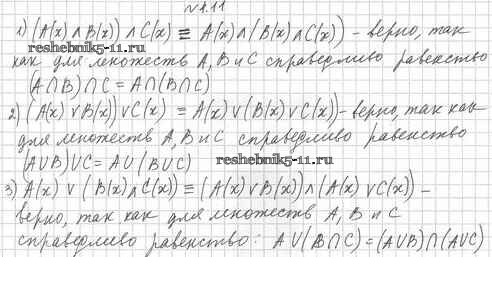 №1.11
1) (A(x) ∧ B(x)) ∧ C(x) ≡ A(x) ∧ (B(x) ∧ C(x)) – верно, так
reshebnik5-11.ru
как для множеств A, B и C справедливо равенство
(A∩B)∩C = A∩(B∩C)
2) (A(x) ∨ B(x)) ∨ C(x) ≡ A(x) ∨ (B(x) ∨ C(x)) – верно, так как
для множеств A, B и C справедливо равенство
(A∪B)∪C = A∪(B∪C)
reshebnik5-11.ru
3) A(x) ∨ (B(x) ∧ C(x)) ≡ (A(x) ∨ B(x)) ∧ (A(x) ∨ C(x)) –
верно, так как для множеств A, B и C
справедливо равенство: A∪(B∩C) = (A∪B)∩(A∪C)